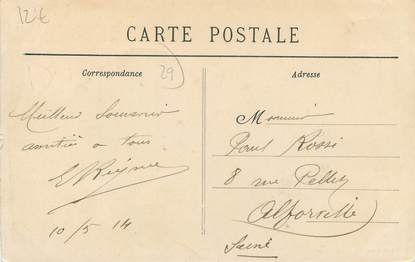 12€
CARTE POSTALE
Correspondance
29
Adresse
Meilleur Souvenir
amitiés a tous
10/5 14
Monsieur
Paul Rossi
8 rue Pelley
Alforville
Seine